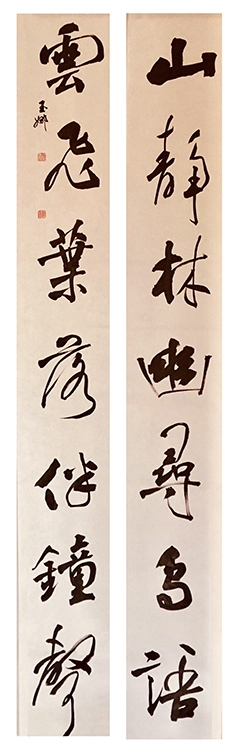 山靜林幽尋鳥語
雲飛葉落伴鐘聲
玉娜